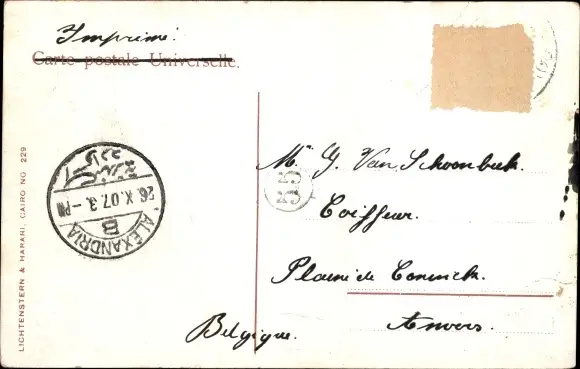 Imprimé.
Carte postale Universelle.
Mr. G. Van Schoonbeek.
Coiffeur.
Plaine de Coninck.
Anvers.
Belgique.
55
ALEXANDRIA
B
26.X.07.3-PM
LICHTENSTERN & HARARI, CAIRO NO. 229